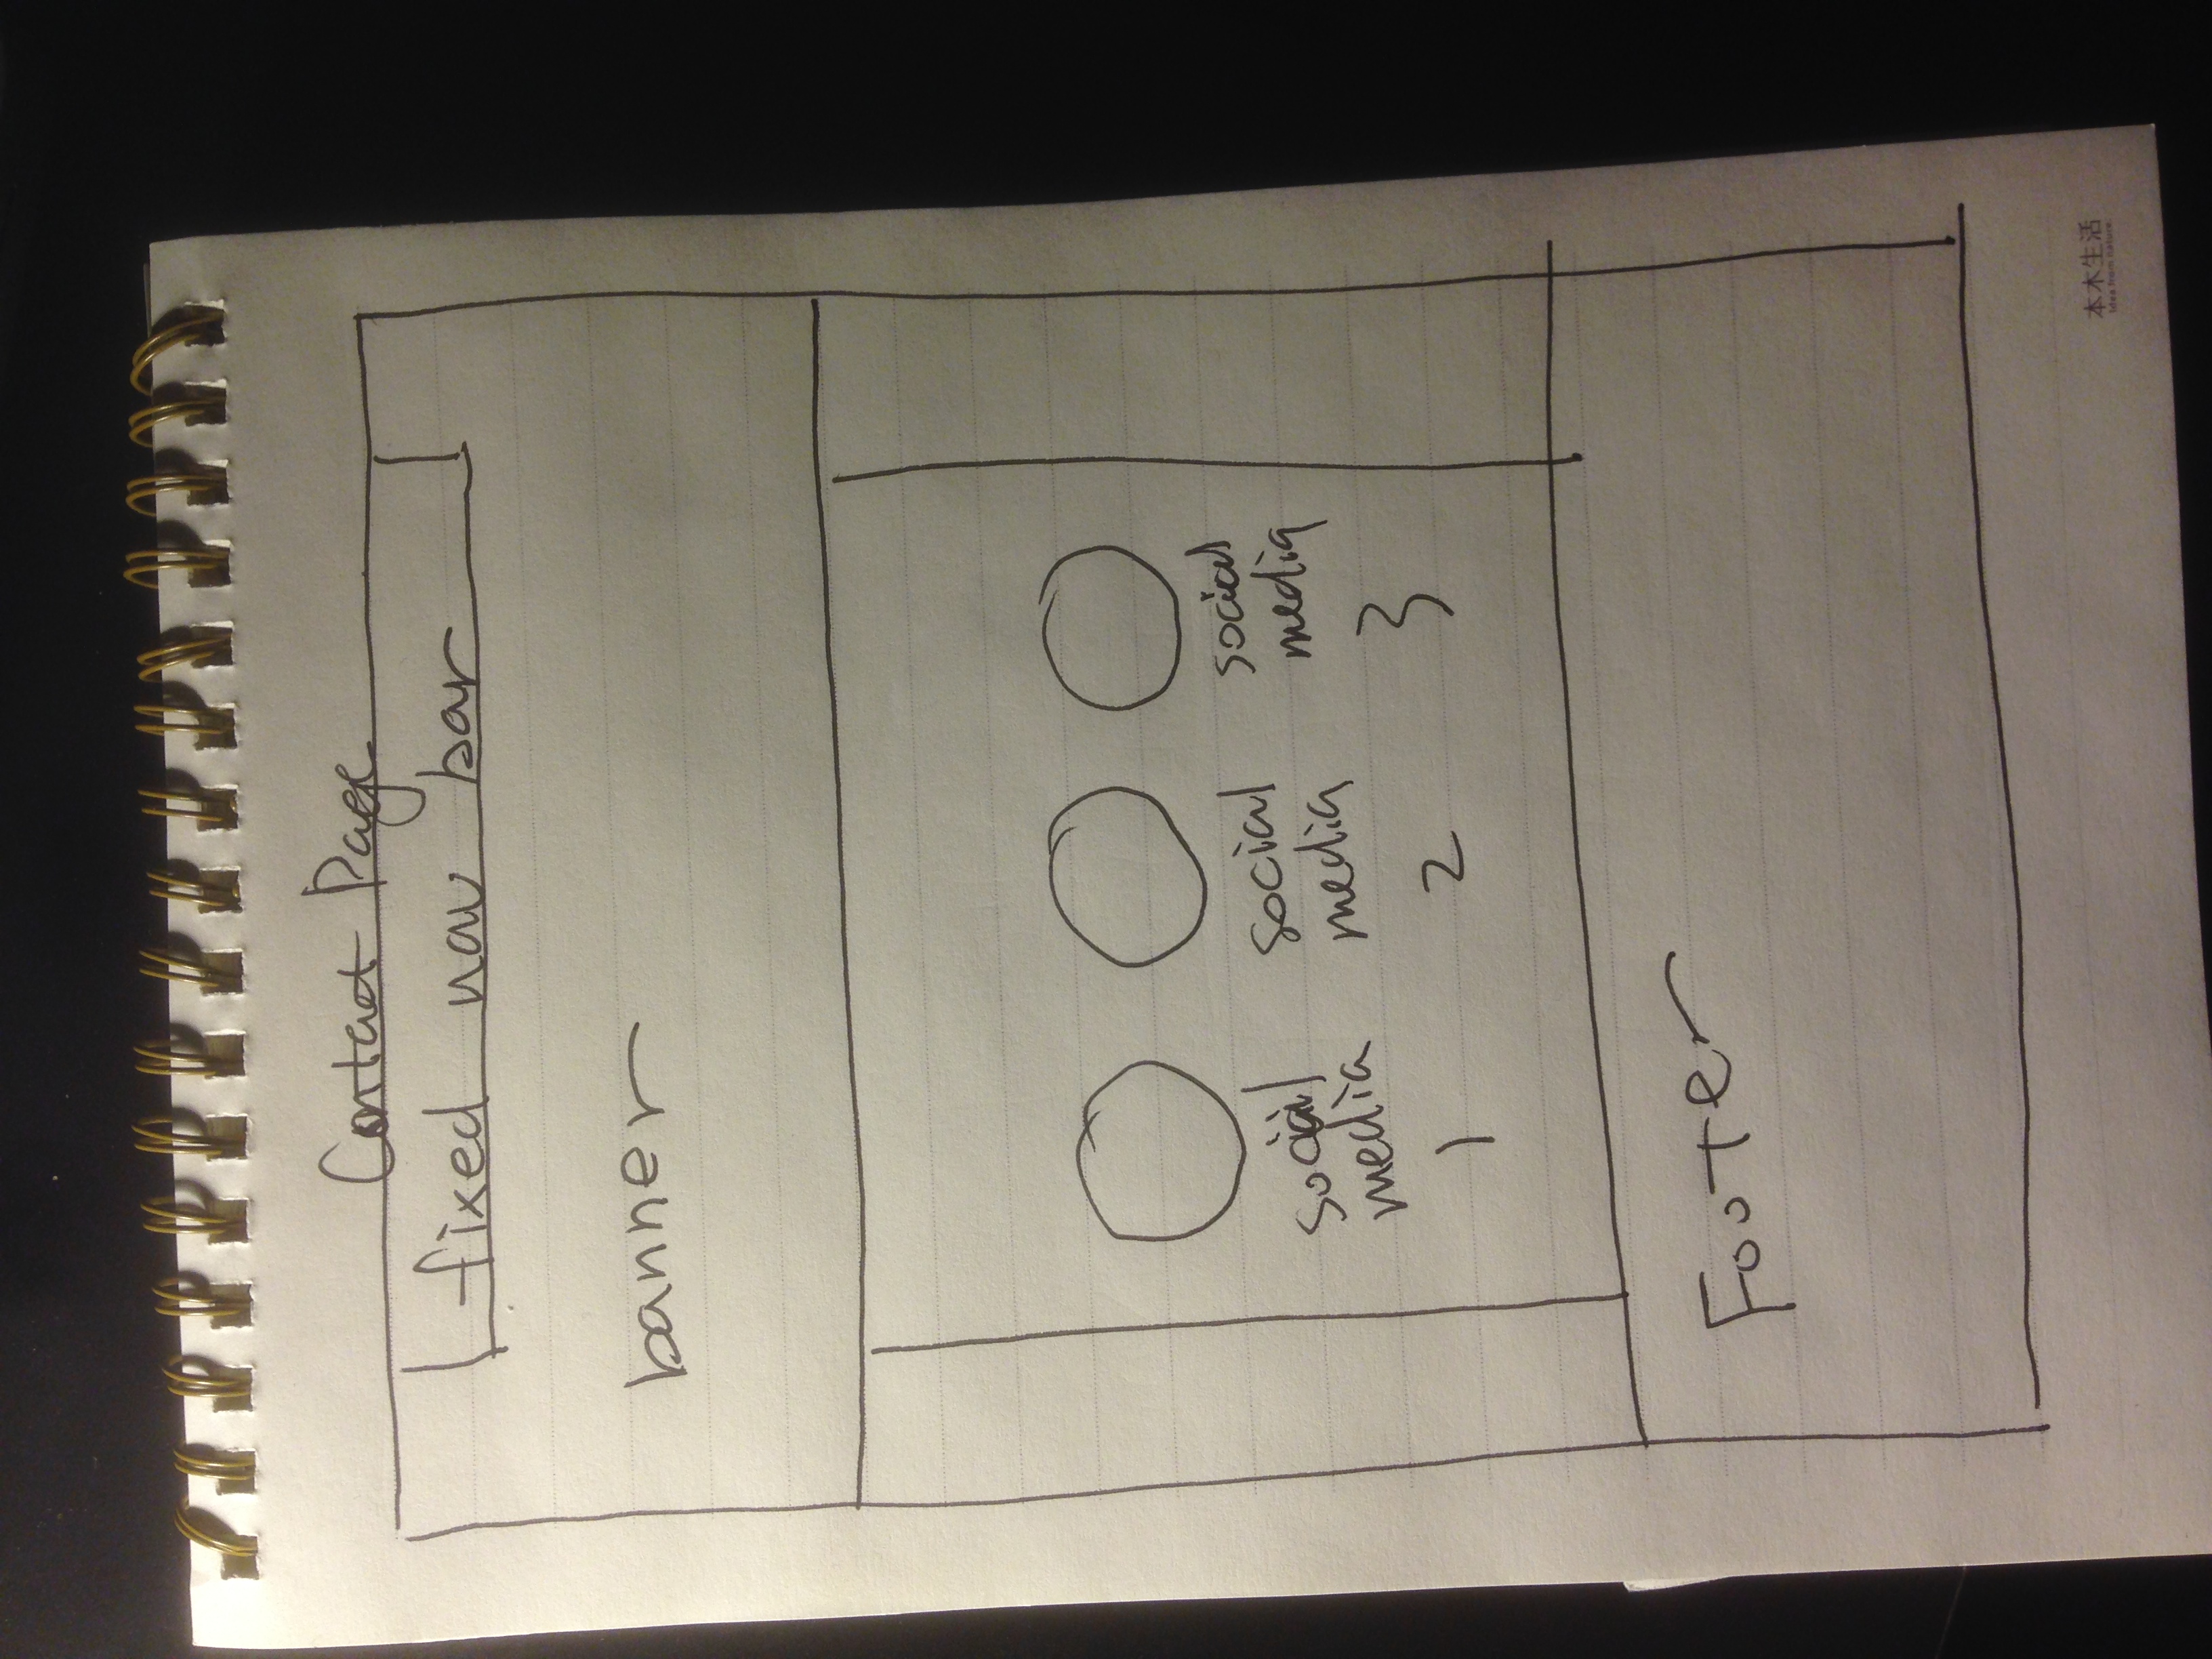 Contact Page
fixed nav bar
banner
social media 1
social media 2
social media 3
Footer
本木生活
Idea from nature.